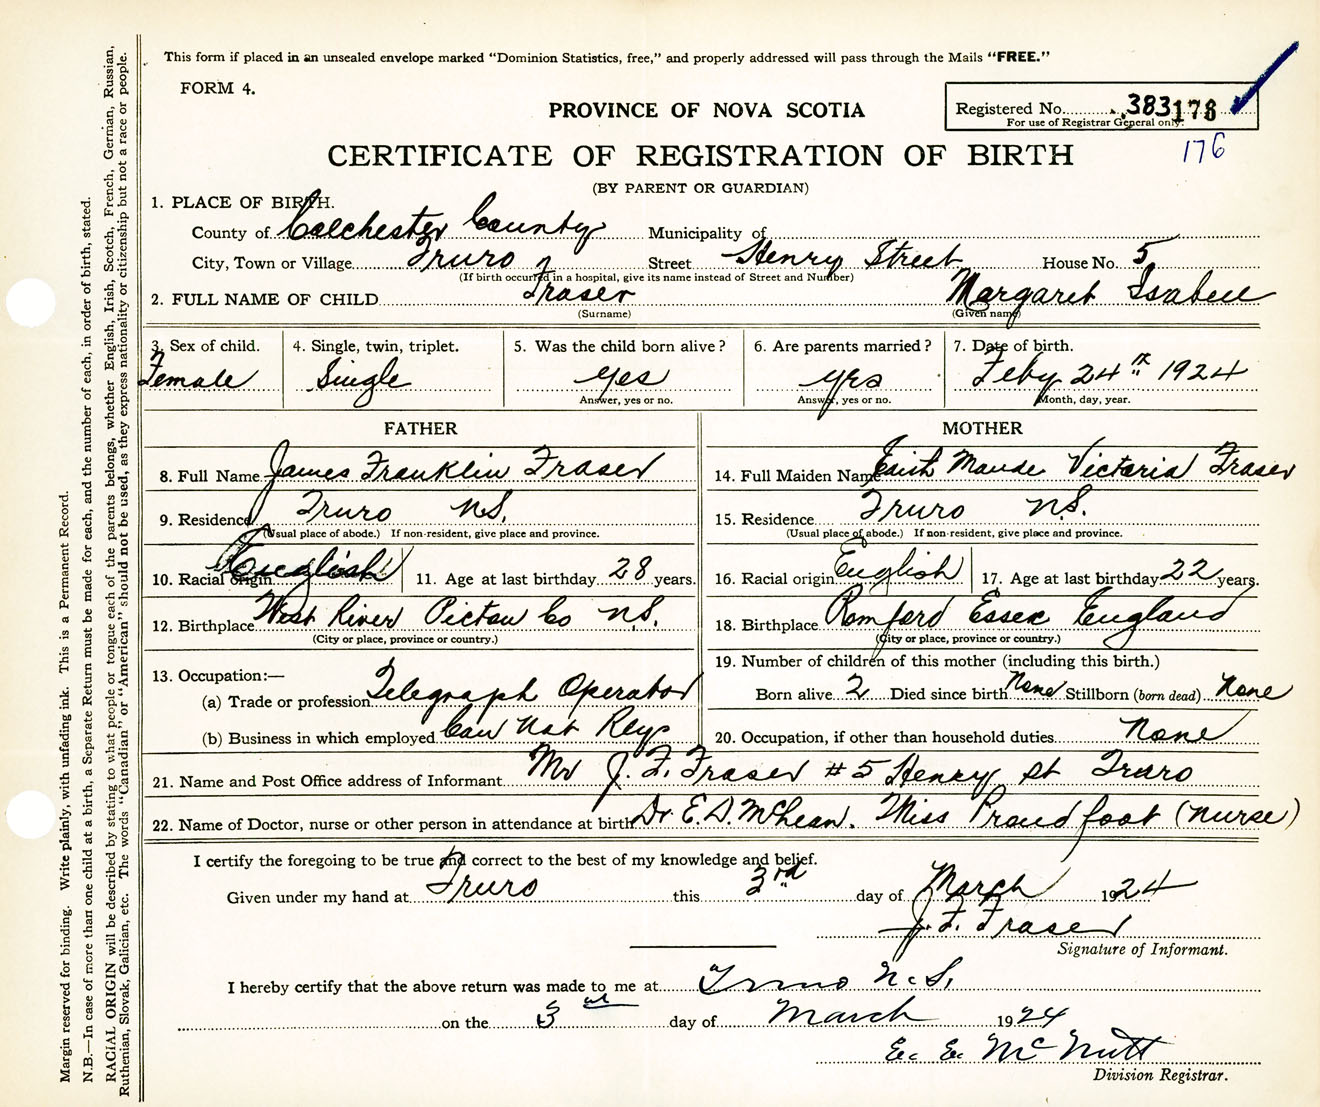 This form if placed in an unsealed envelope marked "Dominion Statistics, free," and properly addressed will pass through the Mails "FREE."
FORM 4.
PROVINCE OF NOVA SCOTIA
Registered No. 383178
For use of Registrar General only.
176
CERTIFICATE OF REGISTRATION OF BIRTH
(BY PARENT OR GUARDIAN)
1. PLACE OF BIRTH.
County of Colchester County Municipality of
City, Town or Village Truro Street Henry Street House No. 5
(If birth occurred in a hospital, give its name instead of Street and Number)
2. FULL NAME OF CHILD Fraser Margaret Isabell
(Surname) (Given name)
3. Sex of child. 4. Single, twin, triplet. 5. Was the child born alive? 6. Are parents married? 7. Date of birth.
Female Single yes yes Feby 24th 1924
Answer, yes or no. Answer, yes or no. Month, day, year.
FATHER MOTHER
8. Full Name James Franklin Fraser 14. Full Maiden Name Edith Maude Victoria Fraser
9. Residence Truro N.S. 15. Residence Truro N.S.
(Usual place of abode.) If non-resident, give place and province. (Usual place of abode.) If non-resident, give place and province.
10. Racial origin English 11. Age at last birthday 28 years. 16. Racial origin English 17. Age at last birthday 22 years.
12. Birthplace West River Pictou Co N.S. 18. Birthplace Romford Essex England
(City or place, province or country.) (City or place, province or country.)
13. Occupation:— 19. Number of children of this mother (including this birth.)
(a) Trade or profession Telegraph Operator Born alive 2 Died since birth None Stillborn (born dead) None
(b) Business in which employed Can Nat Rlys 20. Occupation, if other than household duties None
21. Name and Post Office address of Informant Mr J. F. Fraser #5 Henry St Truro
22. Name of Doctor, nurse or other person in attendance at birth Dr. E. D. McLean. Miss Proudfoot (Nurse)
I certify the foregoing to be true and correct to the best of my knowledge and belief.
Given under my hand at Truro this 3rd day of March 1924
J. F. Fraser
Signature of Informant.
I hereby certify that the above return was made to me at Truro N.S.
on the 3 day of March 1924
E. E. McNutt
Division Registrar.
Margin reserved for binding. Write plainly, with unfading ink. This is a Permanent Record.
N.B.—In case of more than one child at a birth, a Separate Return must be made for each, and the number of each, in order of birth, stated.
RACIAL ORIGIN will be described by stating to what people or tongue each of the parents belongs, whether English, Irish, Scotch, French, German, Russian,
Ruthenian, Slovak, Galician, etc. The words "Canadian" or "American" should not be used, as they express nationality or citizenship but not a race or people.